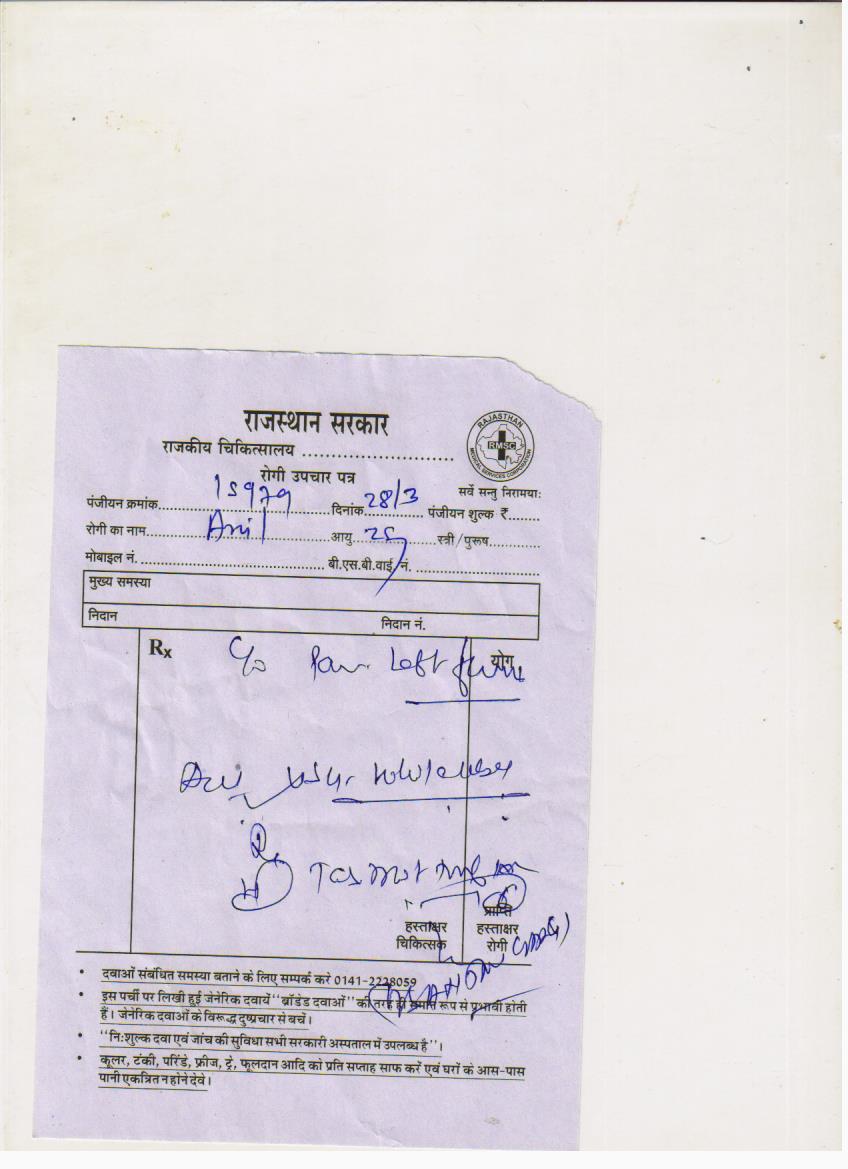 राजस्थान सरकार
राजकीय चिकित्सालय ..........................
RAJASTHAN
RMSC
MEDICAL SERVICES CORPORATION
रोगी उपचार पत्र
सर्वे सन्तु निरामयाः
पंजीयन क्रमांक 15979 दिनांक 28/3 पंजीयन शुल्क ₹........
रोगी का नाम Anil आयु 25 स्त्री/पुरूष..............
मोबाइल नं. ........................................ बी.एस.बी.वाई. नं. ...........................
मुख्य समस्या
निदान निदान नं.
Rx C/o Pain Left योग
हस्ताक्षर चिकित्सक
प्राप्ति हस्ताक्षर रोगी
• दवाओं संबंधित समस्या बताने के लिए सम्पर्क करे 0141-2228059
• इस पर्ची पर लिखी हुई जेनेरिक दवायें "ब्रॉडेड दवाओं" की तरह ही समान रूप से प्रभावी होती
हैं। जेनेरिक दवाओं के विरूद्ध दुष्प्रचार से बचें।
• "निःशुल्क दवा एवं जांच की सुविधा सभी सरकारी अस्पताल में उपलब्ध है"।
• कूलर, टंकी, परिंडे, फ्रीज, ट्रे, फूलदान आदि को प्रति सप्ताह साफ करें एवं घरों के आस-पास
पानी एकत्रित न होने देवे।